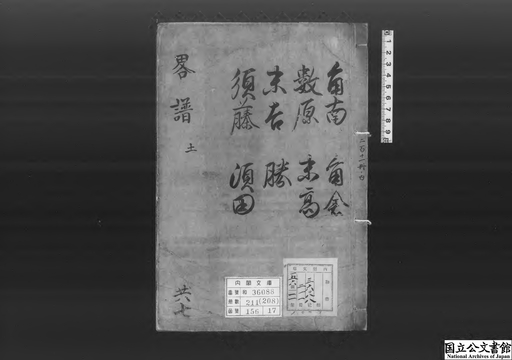 畧譜
土
共七
角南 角倉
數原 末高
末吉 勝
須藤 須田
内閣文庫
番号 和 36083
冊數 211(208)
函號 156 17
国立公文書館
National Archives of Japan